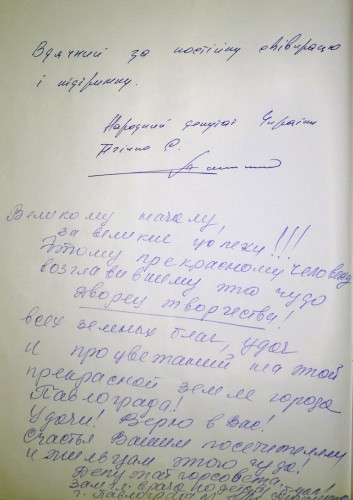 Вдячний за постійну співпрацю
і підтримку.
Народний депутат України
Тігіпко С.
Великому началу,
за великие успехи!!!
Этому прекрасному человеку
возглавившему это чудо
Дворец творчества!
всех земных благ, удач
и процветаний на этой
прекрасной земле города
Павлограда!
Удачи! Верю в Вас!
Счастья Вашим посетителям
и жильцам этого чуда!
Депутат горсовета,
г. Павлоград